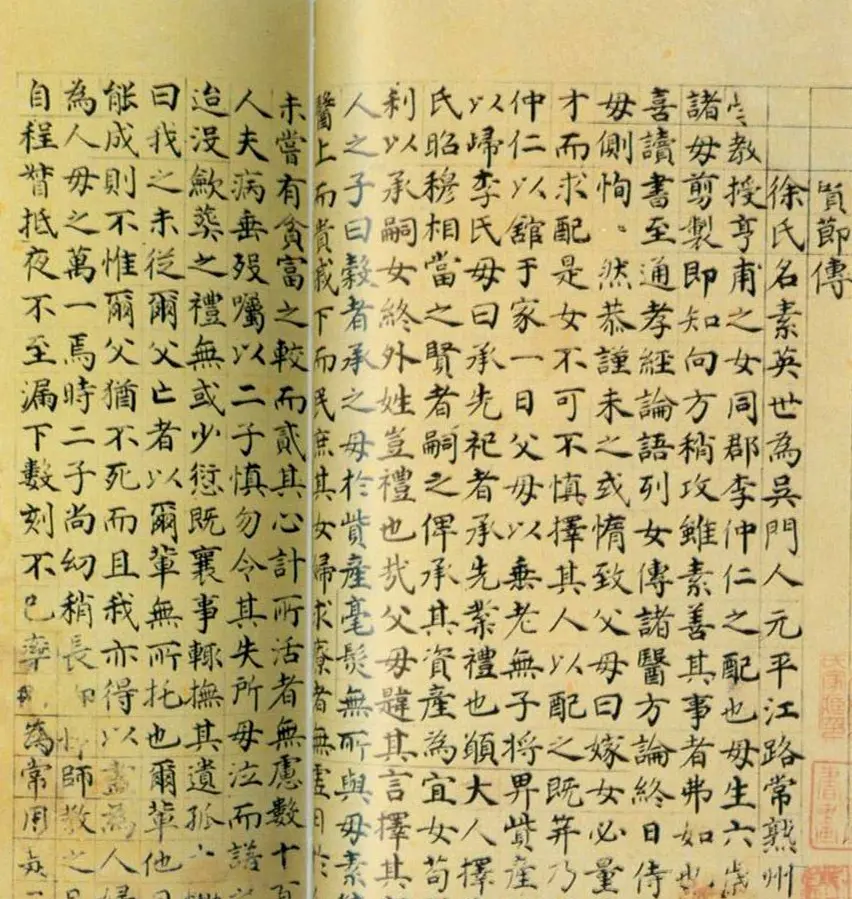 賢節傳
徐氏名素英世為吳門人元平江路常熟州
教授亨甫之女同郡李仲仁之配也母生六歲
諸母剪製即知向方稍攻雖素善其事者弗如也
喜讀書至通孝經論語列女傳諸醫方論終日侍
母側恂〻然恭謹未之或惰致父母曰嫁女必量
才而求配是女不可不慎擇其人以配之既笄乃
仲仁以舘于家一日父母以垂老無子將畀貲產
以歸李氏母曰承先祀者承先業禮也願大人擇
氏昭穆相當之賢者嗣之俾承其資產為宜女苟
利以承嗣女終外姓豈禮也哉父母韙其言擇其
人之子曰穀者承之母於貲產毫髮無所與母素
醫上而貴戚下而民庶其女婦求療者無虛日於
未嘗有貧富之較而貳其心計所活者無慮數十
人夫病垂歿囑以二子慎勿令其失所母泣而諾
迨没歛葬之禮無或少愆既襄事輒撫其遺孤
曰我之未從爾父亡者以爾輩無所托也爾輩他日
能成則不惟爾父猶不死而且我亦得以盡為人婦
為人母之萬一焉時二子尚幼稍長師教之
自程督抵夜不至漏下數刻不已率為常用